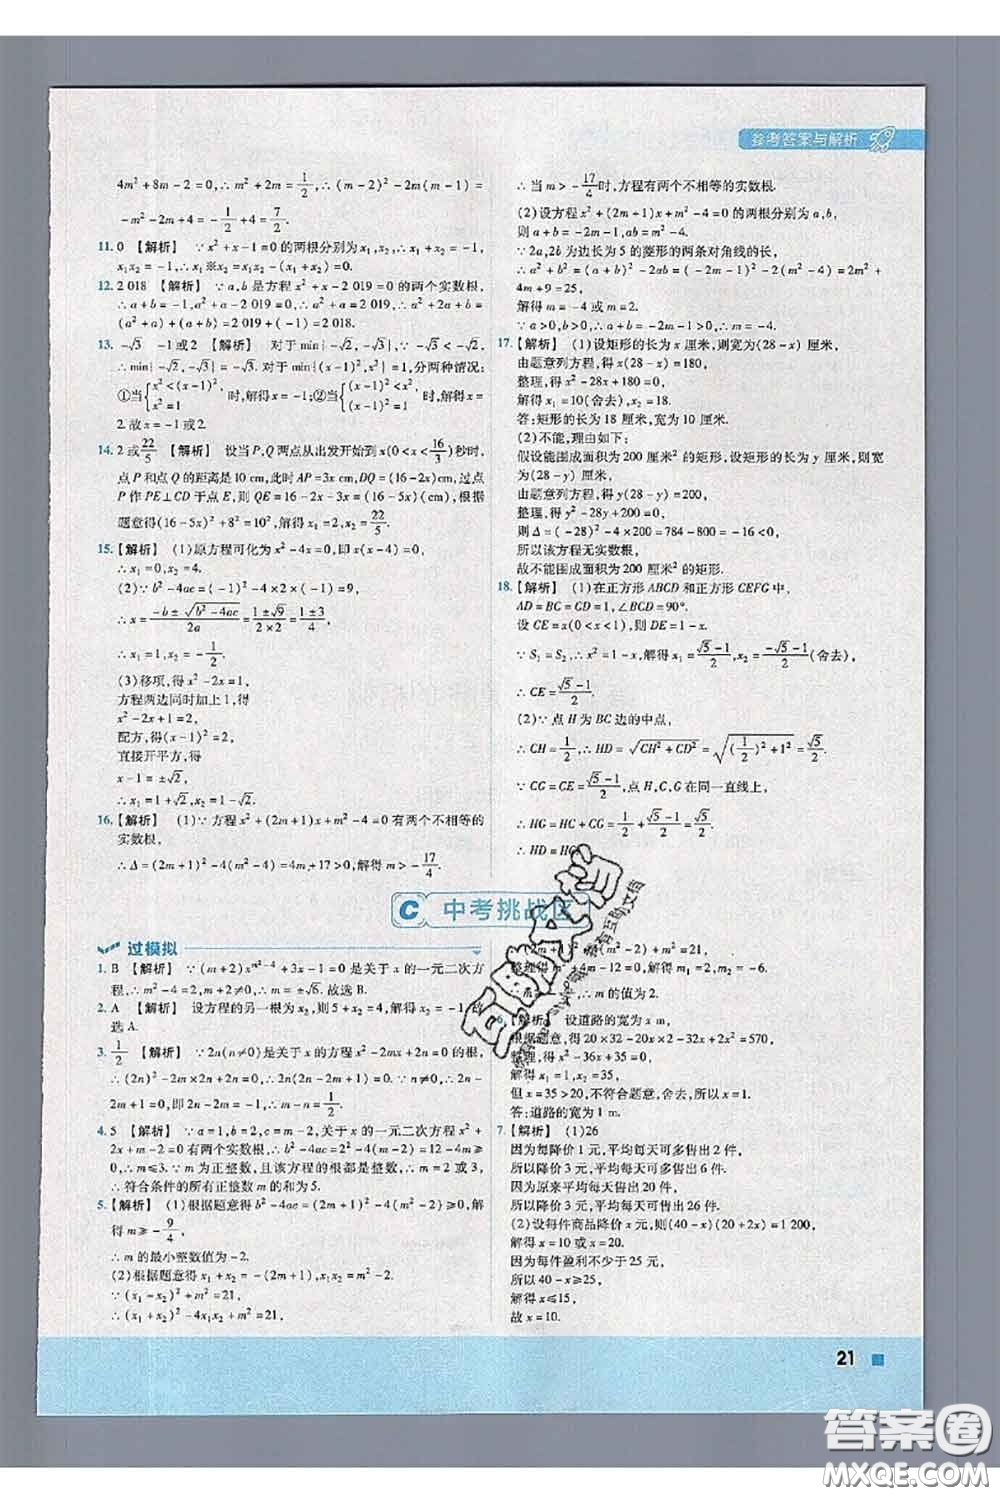 参考答案与解析
4m²+8m-2=0,∴m²+2m=1/2,∴(m-2)²-2m(m-1)=
-m²-2m+4=-1/2+4=7/2.
11. 0 【解析】 ∵x²+x-1=0的两根分别为x₁,x₂,∴x₁+x₂=-1,
x₁x₂=-1,∴x₁※x₂=x₁x₂-(x₁+x₂)=0.
12. 2 018 【解析】 ∵a,b是方程x²+x-2 019=0的两个实数根,
∴a+b=-1,a²+a-2 019=0,∴a²+a=2 019,∴a²+2a+b=
(a²+a)+(a+b)=2 019+(-1)=2 018.
13. -√3 -1或2 【解析】 对于min{-√2,-√3},∵-√3<-√2,
∴min{-√2,-√3}=-√3.对于min{(x-1)²,x²}=1,分两种情况:
①当{x²<(x-1)², x²=1 时,解得x=-1;②当{(x-1)²<x², (x-1)²=1 时,解得x=
2.故x=-1或2.
14. 2或22/5 【解析】 设当P,Q两点从出发开始到x(0<x<16/3)秒时,
点P和点Q的距离是10 cm,此时AP=3x cm,DQ=(16-2x)cm,过点
P作PE⊥CD于点E,则QE=16-2x-3x=(16-5x)(cm),根据
题意得(16-5x)²+8²=10²,解得x₁=2,x₂=22/5.
15.【解析】 (1)原方程可化为x²-4x=0,即x(x-4)=0,
∴x₁=0,x₂=4.
(2)∵b²-4ac=(-1)²-4×2×(-1)=9,
∴x=(-b±√(b²-4ac))/2a=(1±√9)/(2×2)=(1±3)/4,
∴x₁=1,x₂=-1/2.
(3)移项,得x²-2x=1,
方程两边同时加上1,得
x²-2x+1=2,
配方,得(x-1)²=2,
直接开平方,得
x-1=±√2,
∴x₁=1+√2,x₂=1-√2.
16.【解析】 (1)∵方程x²+(2m+1)x+m²-4=0有两个不相等的
实数根,
∴Δ=(2m+1)²-4(m²-4)=4m+17>0,解得m>-17/4.
∴当m>-17/4时,方程有两个不相等的实数根.
(2)设方程x²+(2m+1)x+m²-4=0的两根分别为a,b,
则a+b=-2m-1,ab=m²-4.
∵2a,2b为边长为5的菱形的两条对角线的长,
∴a²+b²=(a+b)²-2ab=(-2m-1)²-2(m²-4)=2m²+
4m+9=25,
解得m=-4或m=2.
∵a>0,b>0,∴a+b=-2m-1>0,∴m=-4.
17.【解析】 (1)设矩形的长为x厘米,则宽为(28-x)厘米,
由题意列方程,得x(28-x)=180,
整理,得x²-28x+180=0,
解得x₁=10(舍去),x₂=18.
答:矩形的长为18厘米,宽为10厘米.
(2)不能,理由如下:
假设能围成面积为200厘米²的矩形,设矩形的长为y厘米,则宽
为(28-y)厘米,
由题意列方程,得y(28-y)=200,
整理,得y²-28y+200=0,
则Δ=(-28)²-4×200=784-800=-16<0,
所以该方程无实数根,
故不能围成面积为200厘米²的矩形.
18.【解析】 (1)在正方形ABCD和正方形CEFG中,
AD=BC=CD=1,∠BCD=90°.
设CE=x(0<x<1),则DE=1-x.
∵S₁=S₂,∴x²=1-x,解得x₁=(√5-1)/2,x₂=(-√5-1)/2(舍去),
∴CE=(√5-1)/2.
(2)∵点H为BC边的中点,
∴CH=1/2,∴HD=√(CH²+CD²)=√((1/2)²+1²)=√5/2.
∵CG=CE=(√5-1)/2,点H,C,G在同一直线上,
∴HG=HC+CG=1/2+(√5-1)/2=√5/2.
∴HD=HG.
C 中考挑战区
过模拟
1. B 【解析】 ∵(m+2)x^(m²-2)+3x-1=0是关于x的一元二次方
程,∴m²-2=2,m+2≠0,∴m=2.故选B.
2. A 【解析】 设方程的另一根为x₂,则5+x₂=4,解得x₂=-1.故
选A.
3. 1/2 【解析】 ∵2n(n≠0)是关于x的方程x²-2mx+2n=0的根,
∴(2n)²-2m×2n+2n=0,∴2n(2n-2m+1)=0.∵n≠0,∴2n-
2m+1=0,即2n-2m=-1,∴m-n=1/2.
4. 5 【解析】 ∵a=1,b=2,c=m-2,关于x的一元二次方程x²+
2x+m-2=0有两个实数根,∴b²-4ac=2²-4(m-2)=12-4m≥
0,∴m≤3.∵m为正整数,且该方程的根都是整数,∴m=2或3,
∴符合条件的所有正整数m的和为5.
5.【解析】 (1)根据题意得b²-4ac=(2m+1)²-4(m²-2)≥0,解
得m≥-9/4,
∴m的最小整数值为-2.
(2)根据题意得x₁+x₂=-(2m+1),x₁x₂=m²-2,
∵(x₁-x₂)²+m²=21,
∴(x₁+x₂)²-4x₁x₂+m²=21,
整理得m²+4m-12=0,解得m₁=2,m₂=-6,
∴m的值为2.
6.【解析】 设道路的宽为x m,
根据题意,得20×32-20x×2-32x+2x²=570,
整理,得x²-36x+35=0,
解得x₁=1,x₂=35,
但x=35>20,不符合题意,舍去,所以x=1.
答:道路的宽为1 m.
7.【解析】 (1)26
因为每件降价1元,平均每天可多售出2件,
所以降价3元,平均每天可多售出6件.
因为原来平均每天可售出20件,
所以降价3元,平均每天可售出26件.
(2)设每件商品降价x元,则(40-x)(20+2x)=1 200,
解得x=10或x=20.
因为每件盈利不少于25元,
所以40-x≥25,
解得x≤15,
故x=10.
21
答案圈
MXQE.COM